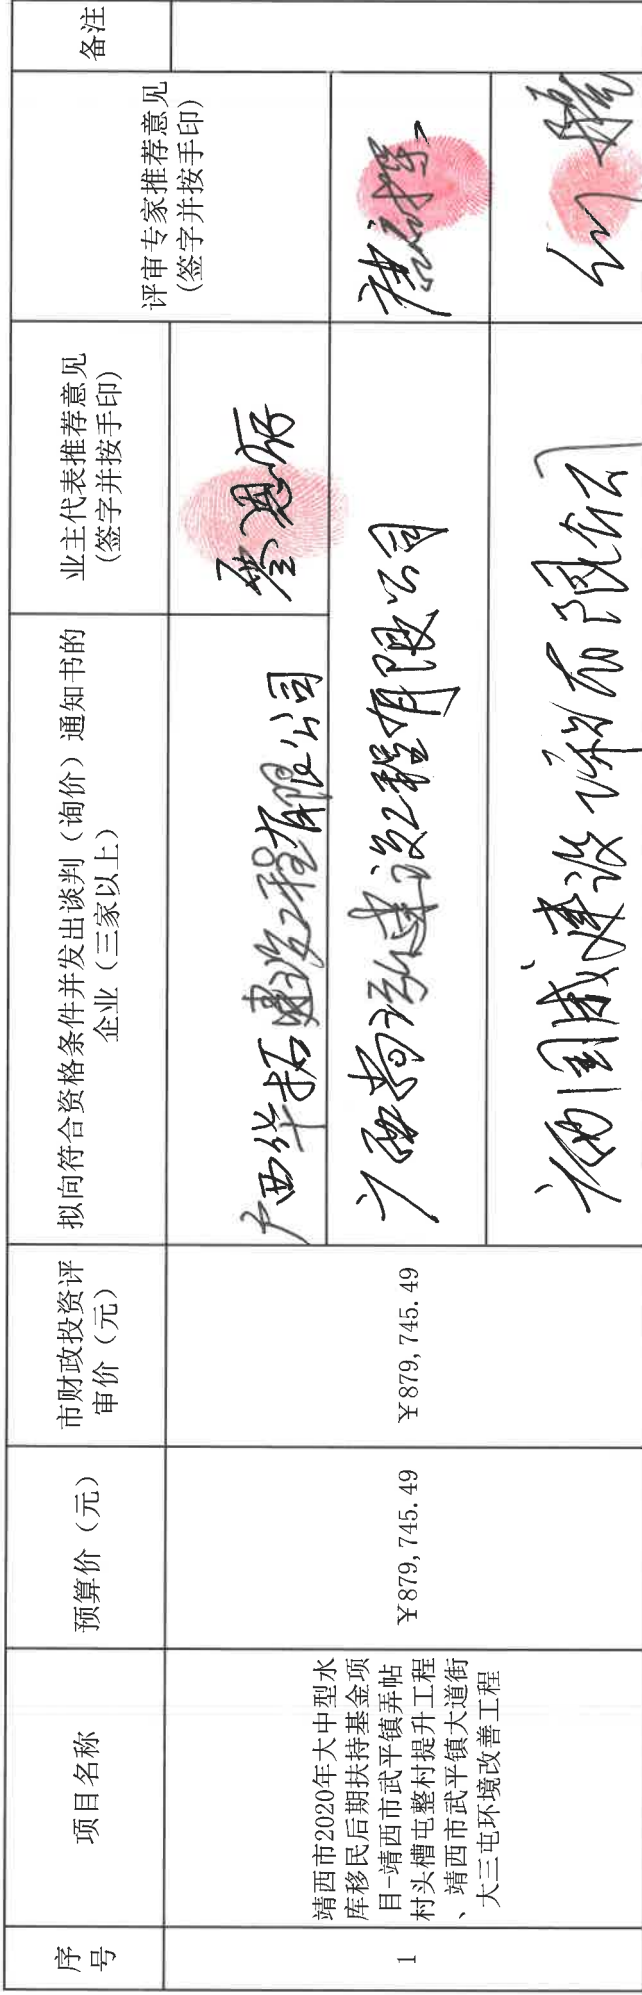 序
号
项目名称
预算价（元）
市财政投资评
审价（元）
拟向符合资格条件并发出谈判（询价）通知书的
企业（三家以上）
业主代表推荐意见
(签字并按手印)
评审专家推荐意见
(签字并按手印)
备注
1
靖西市2020年大中型水
库移民后期扶持基金项
目-靖西市武平镇弄帖
村头槽屯整村提升工程
、靖西市武平镇大道街
大三屯环境改善工程
￥879,745.49
￥879,745.49
广西华拓建设工程有限公司
广西尚泓建设工程有限公司
广西国威建设 有限公司